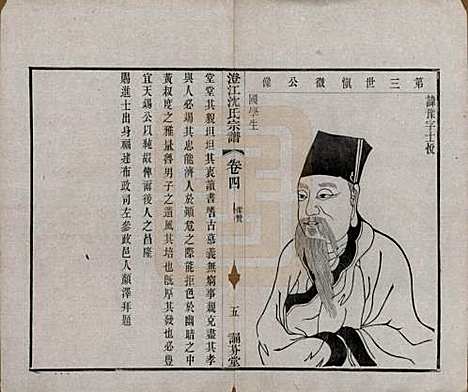 第三世慎徽公像
諱䌹字士恆
國學生
澄江沈氏宗譜 卷四 像贊 五 誦芬堂
堂堂其親坦坦其衷讀書嗜古慕義無窮事親克盡其孝
與人必竭其忠能濟人於顛危之際能拒色於幽暗之中
黃叔度之雅量魯男子之遺風其培也旣厚其發也必豊
宜天錫公以純嘏俾爾後人之昌隆
賜進士出身福建布政司左參政邑人顏澤拜題